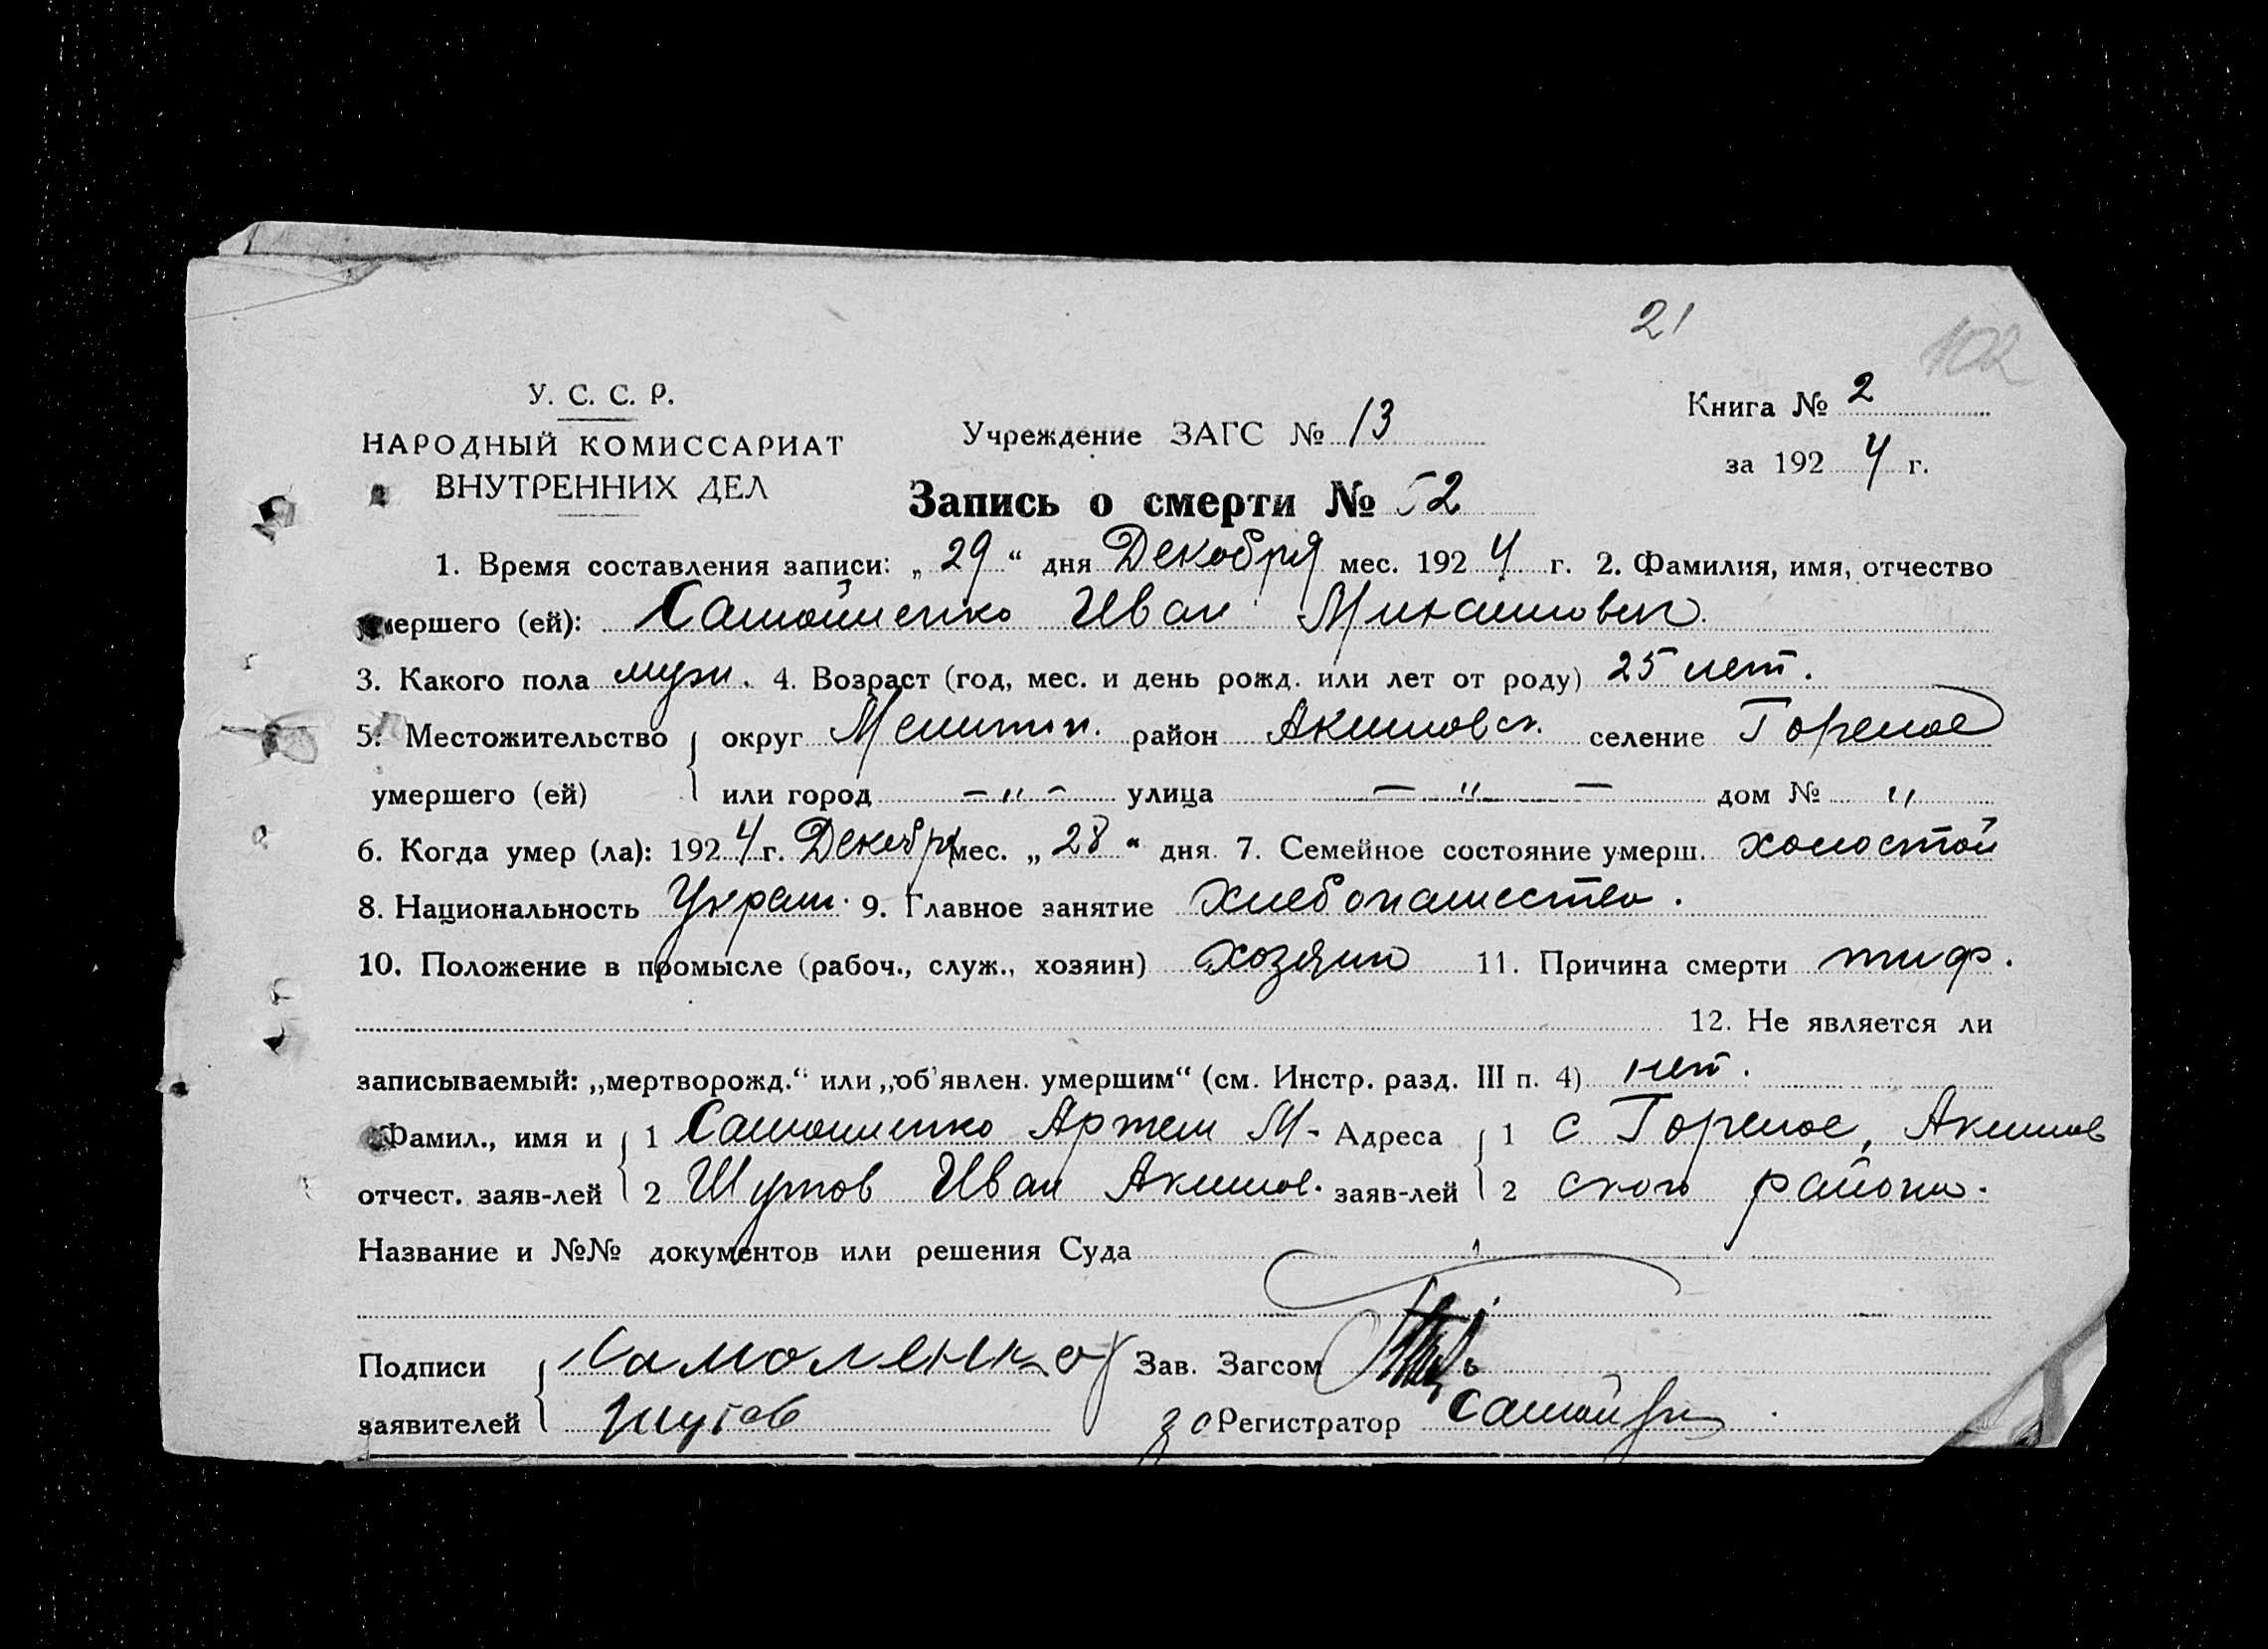 21
102
У. С. С. Р.
НАРОДНЫЙ КОМИССАРИАТ
ВНУТРЕННИХ ДЕЛ
Учреждение ЗАГС № 13
Книга № 2
за 1924 г.
Запись о смерти № 52
1. Время составления записи: „29“ дня Декобря мес. 1924 г. 2. Фамилия, имя, отчество
умершего (ей): Самойленко Иван Михайлович.
3. Какого пола муж. 4. Возраст (год, мес. и день рожд. или лет от роду) 25 лет.
5. Местожительство округ Мелитоп. район Акимовск. селение Горелое
умершего (ей) или город — „ — улица — „ — дом № „
6. Когда умер (ла): 1924 г. Декабря мес. „28“ дня. 7. Семейное состояние умерш. холостой
8. Национальность Украин. 9. Главное занятие Хлебопашество.
10. Положение в промысле (рабоч., служ., хозяин) хозяин 11. Причина смерти тиф.
12. Не является ли
записываемый: „мертворожд.“ или „об'явлен. умершим“ (см. Инстр. разд. III п. 4) нет.
Фамил., имя и 1 Самойленко Артем М- Адреса 1 с Горелое, Акимов
отчест. заяв-лей 2 Шутов Иван Акимов. заяв-лей 2 ского района.
Название и №№ документов или решения Суда
Подписи Самоленко Зав. Загсом
заявителей Шутов Регистратор